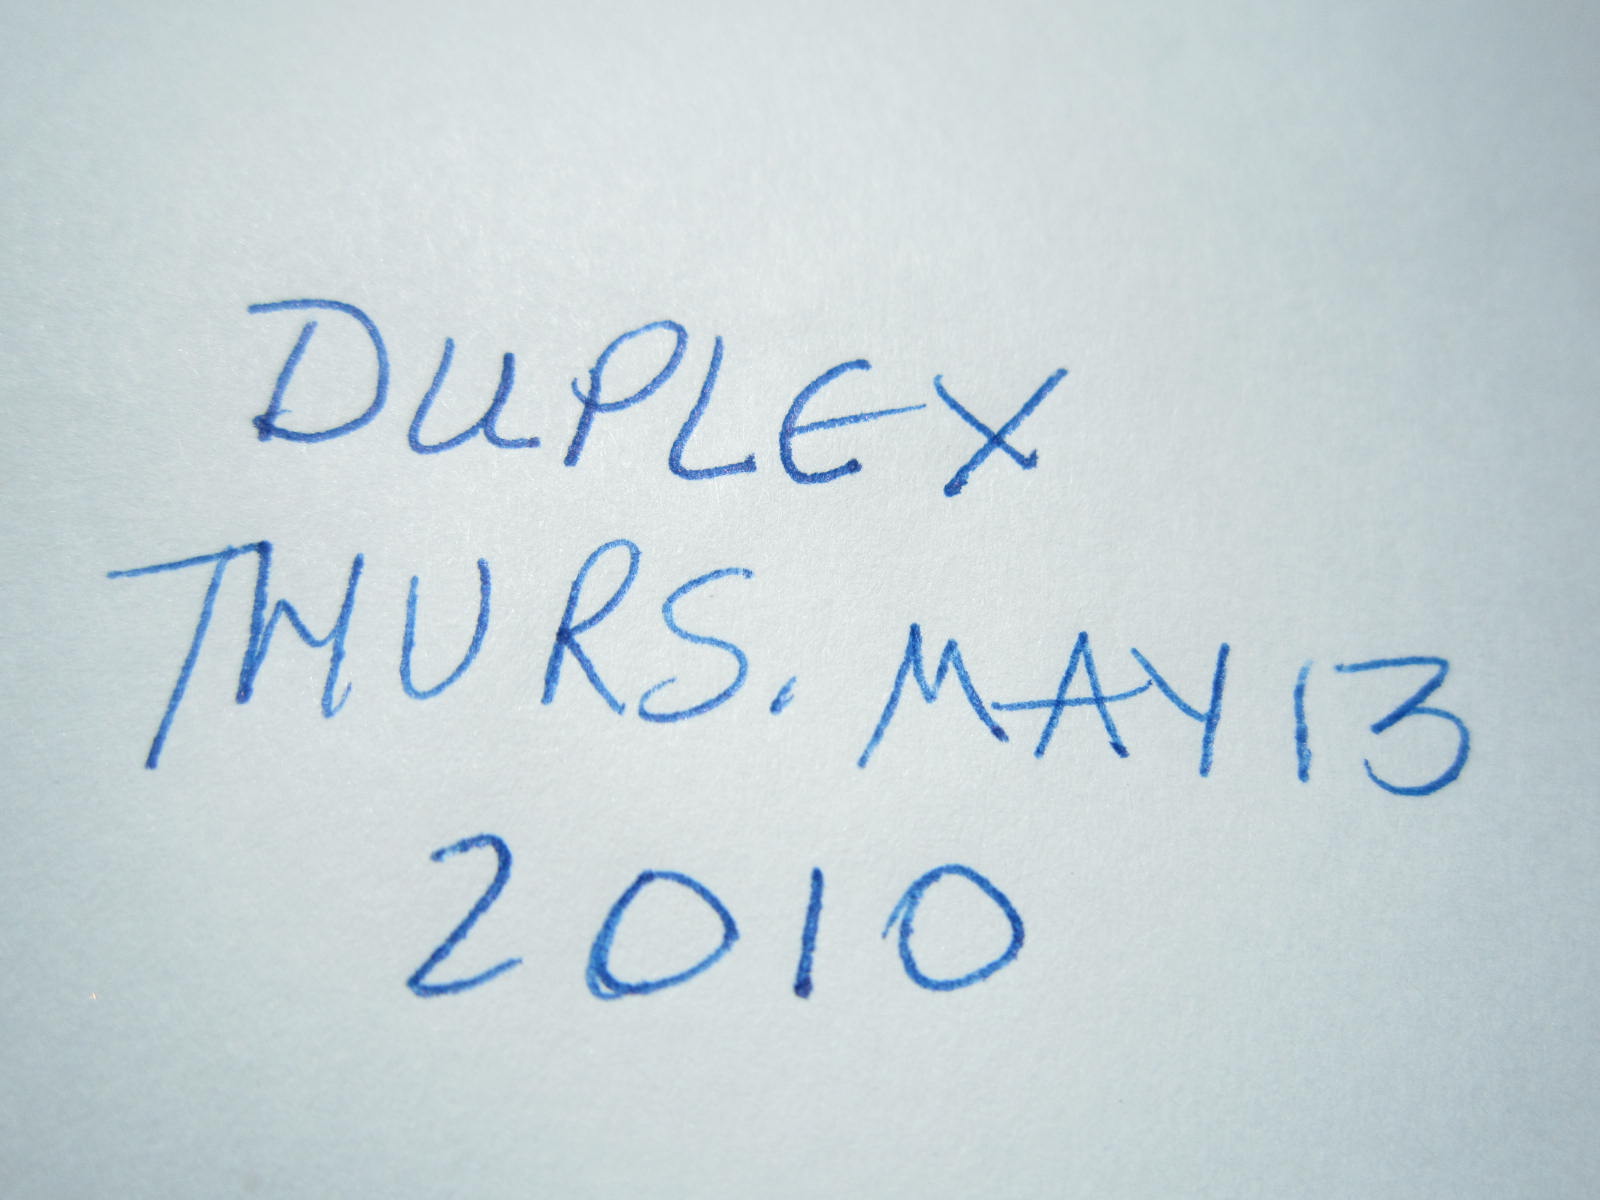 DUPLEX
THURS. MAY 13
2010